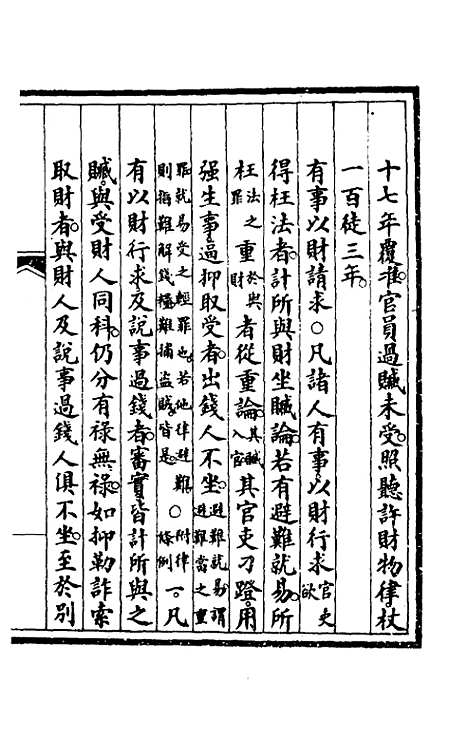 十七年覆准官員過贓未受照聽許財物律杖
一百徒三年
有事以財請求○凡諸人有事以財行求官吏欲
得枉法者計所與財坐贓論若有避難就易所
枉法之罪重於與財者從重論其贓入官其官吏刁蹬用
強生事逼抑取受者出錢人不坐避難就易謂避難當之重
罪就易受之輕罪也若他律避難則指難解錢糧難捕盜賊皆是○附律條例一凡
有以財行求及說事過錢者審實皆計所與之
贓與受財人同科仍分有祿無祿如抑勒詐索
取財者與財人及說事過錢人俱不坐至於別